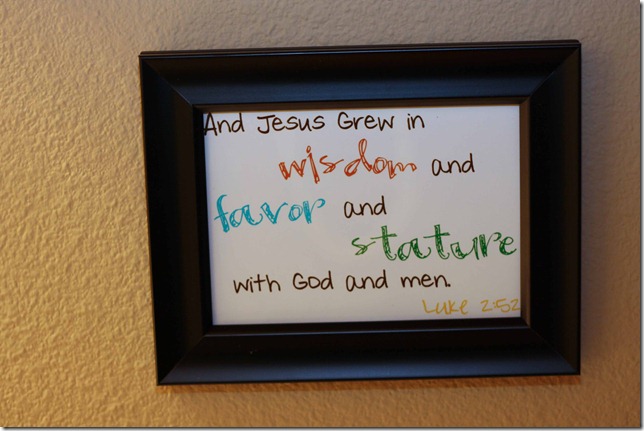 And Jesus Grew in
wisdom and
favor and
stature
with God and men.
Luke 2:52